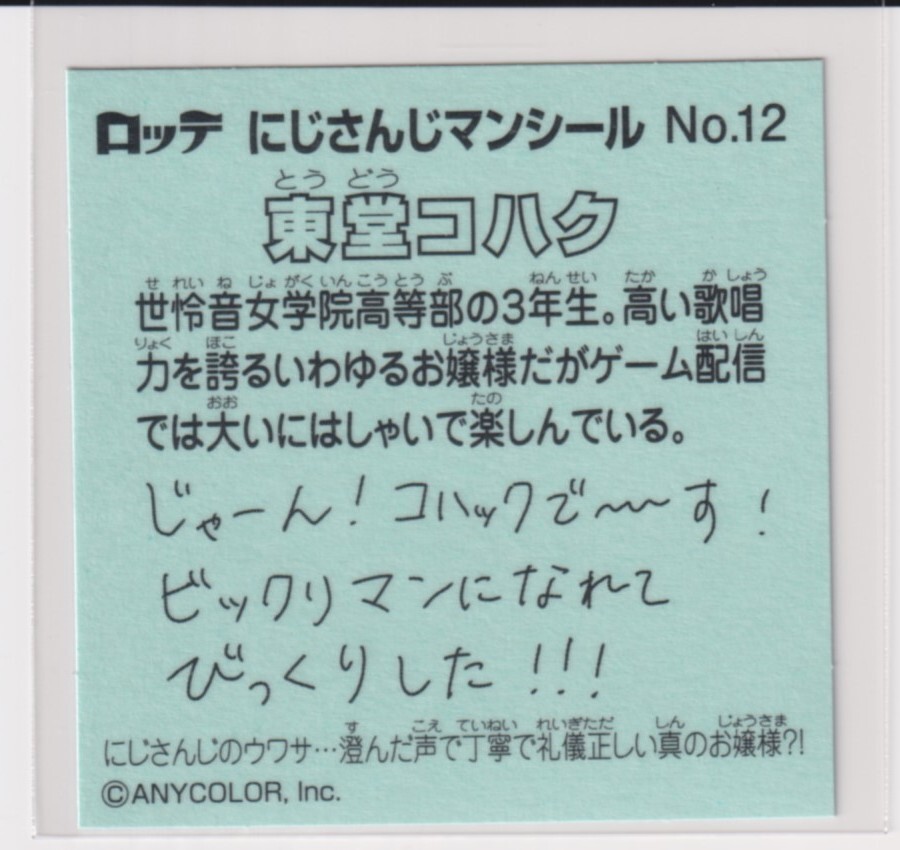 ロッテ にじさんじマンシール No.12
とうどう
東堂コハク
せれいねじょがくいんこうとうぶ ねんせい たか かしょう
世怜音女学院高等部の3年生。高い歌唱
りょく ほこ じょうさま はいしん
力を誇るいわゆるお嬢様だがゲーム配信
おお たの
では大いにはしゃいで楽しんでいる。
じゃーん!コハックで〜〜す!
ビックリマンになれて
びっくりした!!!
す こえ ていねい れいぎただ しん じょうさま
にじさんじのウワサ…澄んだ声で丁寧で礼儀正しい真のお嬢様?!
©ANYCOLOR, Inc.